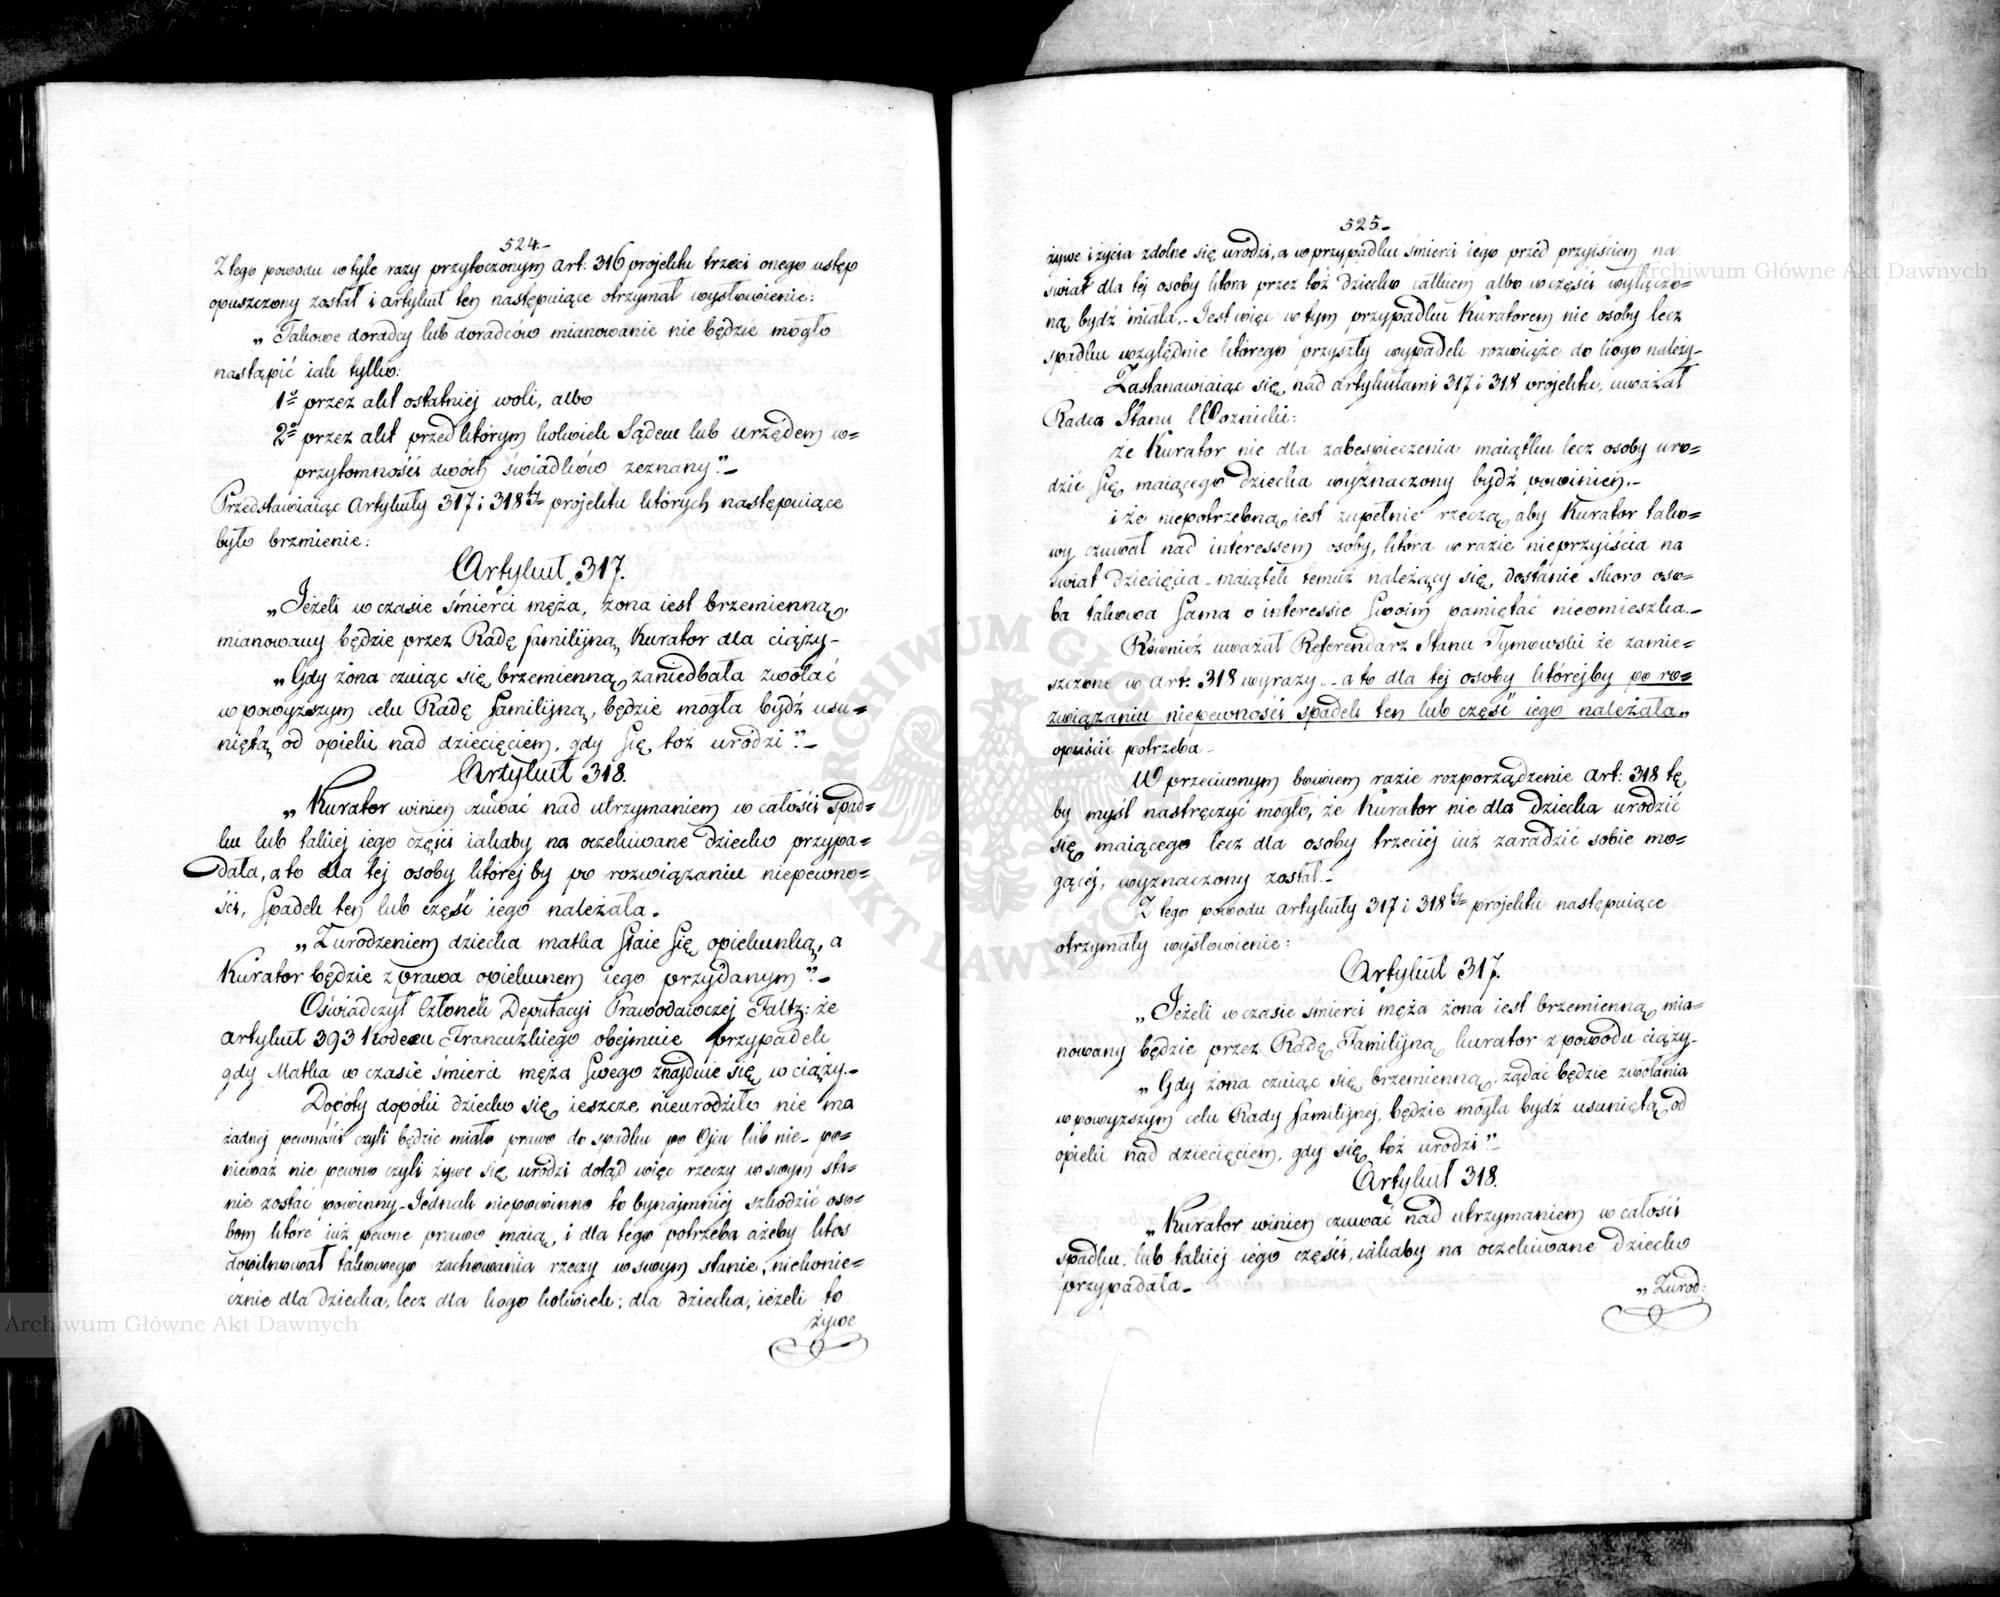 524.
Z tego powodu w tyle razy przytoczonym art: 316 projektu trzeci onego ustęp
opuszczony został i artykuł ten następuiące otrzymał wysłowienie:
„Takowe doradcy lub doradców mianowanie nie będzie mogło
nastąpić iak tylko:
1º przez akt ostatniej woli, albo
2º przez akt przed którym kolwiek Sądem lub urzędem w=
przytomności dwóch świadków zeznany."_
Przedstawiaiąc artykuły 317 i 318 projektu których następuiące
było brzmienie:
Artykuł 317.
„Jeżeli w czasie śmierci męża, żona iest brzemienną,
mianowany będzie przez Radę familijną Kurator dla ciąży_
„Gdy żona czuiąc się brzemienną, zaniedbała zwołać
w powyższym celu Radę familijną, będzie mogła bydź usu=
niętą od opieki nad dziecięciem, gdy się toż urodzi"_
Artykuł 318.
„Kurator winien czuwać nad utrzymaniem w całości spad=
ku lub takiej iego części iakaby na oczekiwane dziecko przypa=
dała, a to dla tej osoby którejby po rozwiązaniu niepewno=
ści, spadek ten lub część iego należała.
„Z urodzeniem dziecka matka staie się opiekunką, a
Kurator będzie z prawa opiekunem iego przydanym"_
Oświadczył Członek Deputacyi Prawodawczej Faltz: że
artykuł 393 Kodexu Francuzkiego obejmuie przypadek
gdy Matka w czasie śmierci męża swego znajduie się w ciąży._
Dopóty dopóki dziecko się ieszcze nieurodziło nie ma
żadnej pewności czyli będzie miało prawo do spadku po Ojcu lub nie_ po=
nieważ nie pewno czyli żywe się urodzi dotąd więc rzeczy w swym sta=
nie zostać powinny_ Jednak niepowinno to bynajmniej szkodzić oso=
bom które już pewne prawo maią, i dla tego potrzeba ażeby ktoś
dopilnował takowego zachowania rzeczy w swym stanie, niekonie=
cznie dla dziecka, lecz dla kogo kolwiek; dla dziecka, ieżeli to
żywe
525.
żywe i życia zdolne się urodzi, a w przypadku śmierci iego przed przyjściem na
świat dla tej osoby która przez toż dziecko całkiem albo w części wyłączo=
ną bydź miała._ Jest więc w tym przypadku Kuratorem nie osoby lecz
spadku względnie którego przyszły wypadek rozwiąże do kogo należy_
Zastanawiaiąc się nad artykułami 317 i 318 projektu, uważał
Radca Stanu Woźnicki:
że Kurator nie dla zabespieczenia maiątku lecz osoby uro=
dzić się maiącego dziecka wyznaczony bydź powinien._
i że niepotrzebną iest zupełnie rzeczą aby Kurator tako=
wy czuwał nad interessem osoby, która w razie nieprzyiścia na
świat dziecięcia maiątek temuż należący się, dostanie skoro oso=
ba takowa sama o interessie swoim pamiętać nieomieszka._
Również uważał Referendarz Stanu Tymowski że zamie=
szczone w art: 318 wyrazy _ a to dla tej osoby którejby po ro=
związaniu niepewności spadek ten lub część iego należała„
opuścić potrzeba_
W przeciwnym bowiem razie rozporządzenie art: 318 tę
by myśl nastręczyć mogło, że Kurator nie dla dziecka urodzić
się maiącego lecz dla osoby trzeciej już zaradzić sobie mo=
gącej, wyznaczony został._
Z tego powodu artykuły 317 i 318 projektu następuiące
otrzymały wysłowienie:
Artykuł 317.
„Jeżeli w czasie śmierci męża żona iest brzemienną mia=
nowany będzie przez Radę Familijną kurator z powodu ciąży_
„Gdy żona czuiąc się brzemienną, żądać będzie zwołania
w powyższym celu Rady familijnej, będzie mogła bydź usuniętą od
opieki nad dziecięciem, gdy się toż urodzi"_
Artykuł 318.
„Kurator winien czuwać nad utrzymaniem w całości
spadku, lub takiej iego części, iakaby na oczekiwane dziecko
przypadała._
„Zurod:
Archiwum Główne Akt Dawnych
Archiwum Główne Akt Dawnych
ARCHIWUM GŁÓWNE AKT DAWNYCH